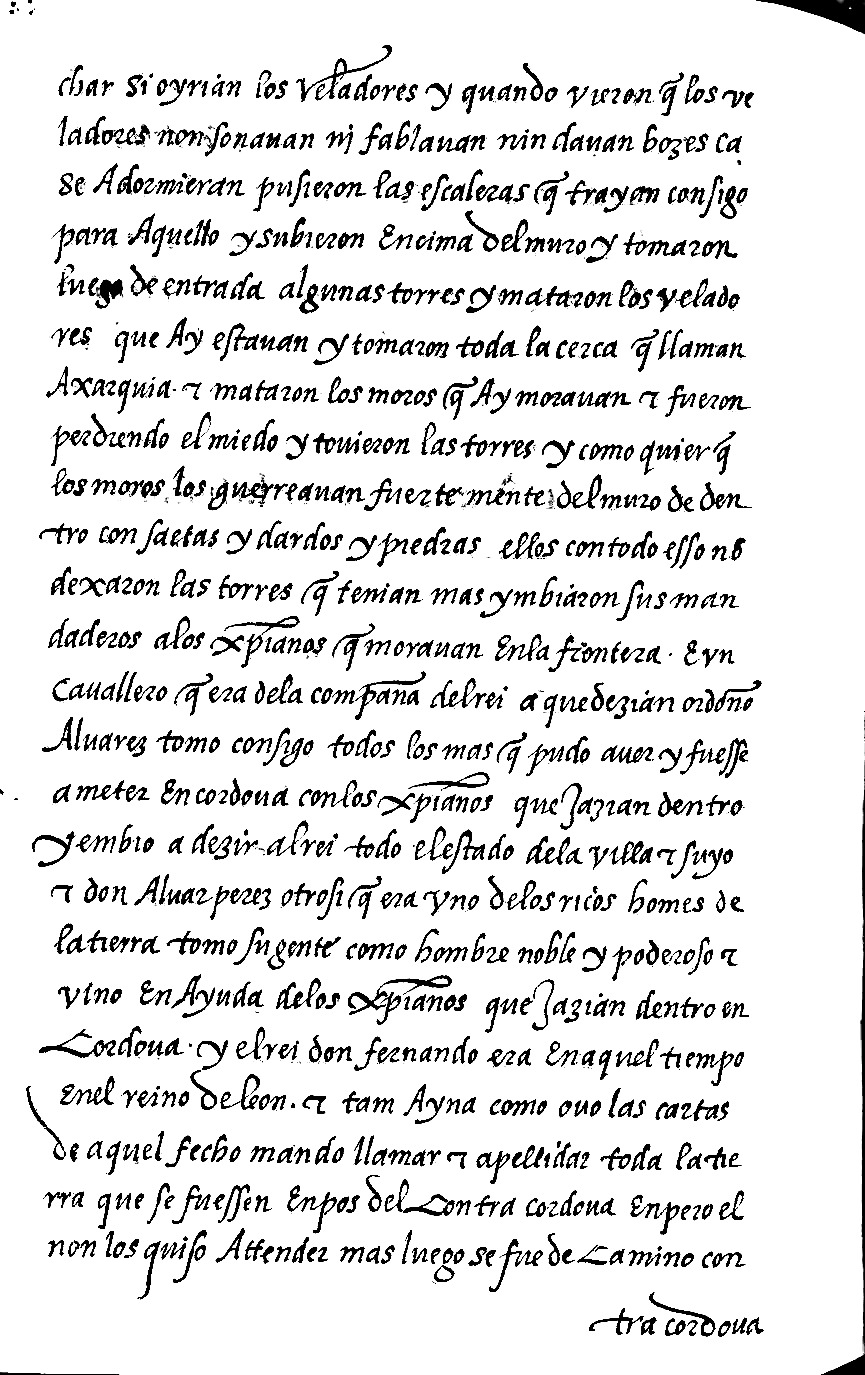 char si oyrian los veladores y quando vieron q̃ los ve
ladores non sonauan nj fablauan nin dauan bozes ca
se Adormieran pusieron las escaleras q̃ trayan consigo
para Aquello y subieron Encima del muro y tomaron
luego de entrada algunas torres y mataron los velado
res que Ay estauan y tomaron toda la cerca q̃ llaman
Axarquia· ⁊ mataron los moros q̃ Ay morauan ⁊ fueron
perdiendo el miedo y touieron las torres y como quier q̃
los moros los guerreauan fuerte mente del muro de den
tro con saetas y dardos y piedras ellos con todo esso no
dexaron las torres q̃ tenian mas ymbiaron sus man
daderos a los xp̃ianos q̃ morauan Enla frontera· E vn
Cauallero q̃ era dela compan̄a del rei a que dezian ordon̄o
Aluarez tomo consigo todos los mas q̃ pudo auer y fuesse
a meter En cordoua con los xp̃ianos que Jazian dentro
y embio a dezir al rei todo el estado dela villa ⁊ suyo
⁊ don Aluar perez otrosi q̃ era vno delos ricos homes de
la tierra tomo su gente como hombre noble y poderoso ⁊
vino En Ayuda delos xp̃ianos que Jazian dentro en
Cordoua· y el rei don fernando era En aquel tiempo
Enel reino de leon. ⁊ tam Ayna como ouo las cartas
de aquel fecho mando llamar ⁊ apellidar toda la tie
rra que se fuessen En pos del Contra cordoua En pero el
non los quiso Attender mas luego se fue de Camino con
tra cordoua